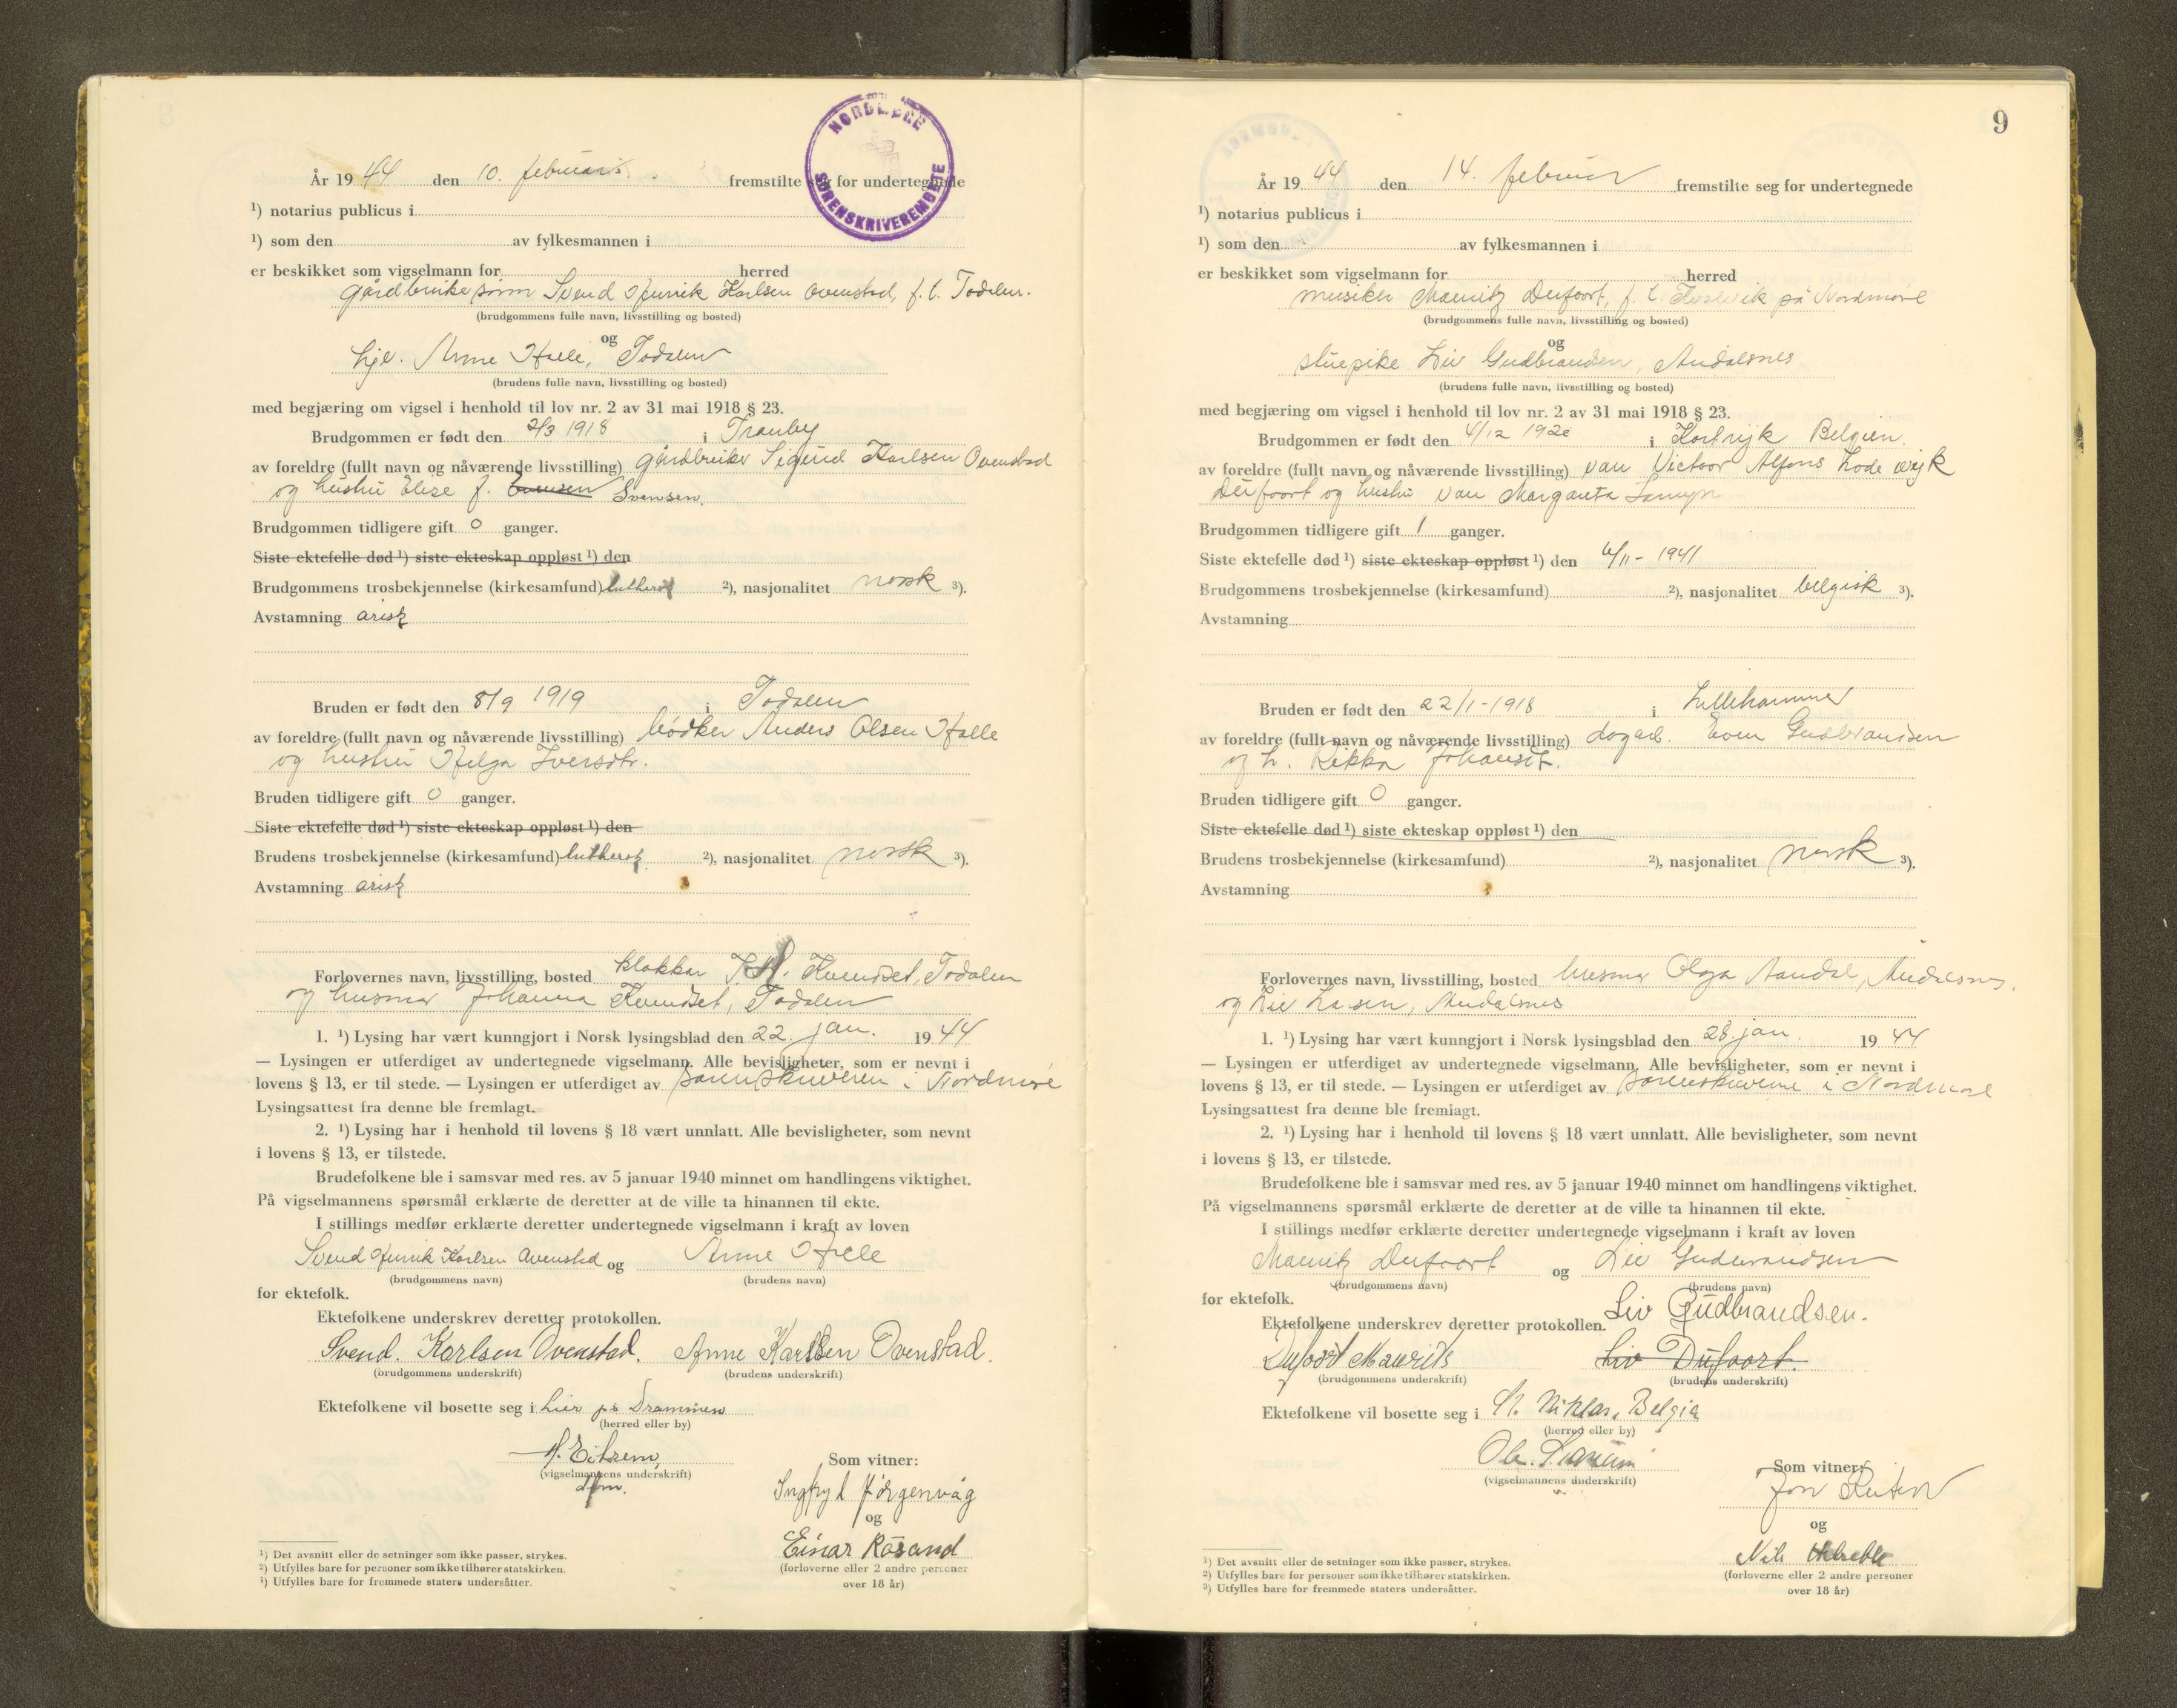 NORDMØRE
SORENSKRIVEREMBETE
År 19 44 den 10. februar fremstilte seg for undertegnede
¹) notarius publicus i
¹) som den av fylkesmannen i
er beskikket som vigselmann for herred
gårdbrukersønn Svend Henrik Karlsen Ovenstad, f. t. Todalen.
(brudgommens fulle navn, livsstilling og bosted)
og
hjv. Anne Halle, Todalen
(brudens fulle navn, livsstilling og bosted)
med begjæring om vigsel i henhold til lov nr. 2 av 31 mai 1918 § 23.
Brudgommen er født den 2/3 1918 i Tranby
av foreldre (fullt navn og nåværende livsstilling) gårdbruker Sigurd Karlsen Ovenstad
og hustru Elise f. Svensen.
Brudgommen tidligere gift 0 ganger.
Siste ektefelle død ¹) siste ekteskap oppløst ¹) den
Brudgommens trosbekjennelse (kirkesamfund) luthersk ²), nasjonalitet norsk ³).
Avstamning arisk
Bruden er født den 8/9 1919 i Todalen
av foreldre (fullt navn og nåværende livsstilling) bødker Anders Olsen Halle
og hustru Helga Iversdtr.
Bruden tidligere gift 0 ganger.
Siste ektefelle død ¹) siste ekteskap oppløst ¹) den
Brudens trosbekjennelse (kirkesamfund) luthersk ²), nasjonalitet norsk ³).
Avstamning arisk
Forlovernes navn, livsstilling, bosted klokkar Kvendset, Todalen
og husmor Johanna Kvendset, Todalen
1. ¹) Lysing har vært kunngjort i Norsk lysingsblad den 22. jan. 19 44
— Lysingen er utferdiget av undertegnede vigselmann. Alle bevisligheter, som er nevnt i
lovens § 13, er til stede. — Lysingen er utferdiget av sorenskriveren i Nordmøre
Lysingsattest fra denne ble fremlagt.
2. ¹) Lysing har i henhold til lovens § 18 vært unnlatt. Alle bevisligheter, som nevnt
i lovens § 13, er tilstede.
Brudefolkene ble i samsvar med res. av 5 januar 1940 minnet om handlingens viktighet.
På vigselmannens spørsmål erklærte de deretter at de ville ta hinannen til ekte.
I stillings medfør erklærte deretter undertegnede vigselmann i kraft av loven
Svend Henrik Karlsen Ovenstad og Anne Halle
(brudgommens navn) (brudens navn)
for ektefolk.
Ektefolkene underskrev deretter protokollen.
Svend. Karlsen Ovenstad. Anne Karlsen Ovenstad.
(brudgommens underskrift) (brudens underskrift)
Ektefolkene vil bosette seg i Lier pr Drammen
(herred eller by)
Eitrem,
(vigselmannens underskrift)
dfm.
Som vitner:
Jørgenvåg
og
Einar Røsand
(forloverne eller 2 andre personer
over 18 år)
¹) Det avsnitt eller de setninger som ikke passer, strykes.
²) Utfylles bare for personer som ikke tilhører statskirken.
³) Utfylles bare for fremmede staters undersåtter.
9
År 19 44 den 14. februar fremstilte seg for undertegnede
¹) notarius publicus i
¹) som den av fylkesmannen i
er beskikket som vigselmann for herred
musiker Mauritz Dufoort, f. t. på Nordmøre
(brudgommens fulle navn, livsstilling og bosted)
og
stuepike Liv Gudbrandsen, Åndalsnes
(brudens fulle navn, livsstilling og bosted)
med begjæring om vigsel i henhold til lov nr. 2 av 31 mai 1918 § 23.
Brudgommen er født den 4/12 1920 i Kortrijk Belgien.
av foreldre (fullt navn og nåværende livsstilling) van Victoor Alfons Lodewijk
Dufoort og hustru van Margareta
Brudgommen tidligere gift 1 ganger.
Siste ektefelle død ¹) siste ekteskap oppløst ¹) den 6/11 - 1941
Brudgommens trosbekjennelse (kirkesamfund) ²), nasjonalitet belgisk ³).
Avstamning
Bruden er født den 22/1 - 1918 i Lillehammer
av foreldre (fullt navn og nåværende livsstilling) dagarb. Even Gudbrandsen
og h. Rikka Johansdt.
Bruden tidligere gift 0 ganger.
Siste ektefelle død ¹) siste ekteskap oppløst ¹) den
Brudens trosbekjennelse (kirkesamfund) ²), nasjonalitet norsk ³).
Avstamning
Forlovernes navn, livsstilling, bosted husmor Olga Aandal, Åndalsnes,
og Liv Larsen, Åndalsnes
1. ¹) Lysing har vært kunngjort i Norsk lysingsblad den 28. jan. 19 44
— Lysingen er utferdiget av undertegnede vigselmann. Alle bevisligheter, som er nevnt i
lovens § 13, er til stede. — Lysingen er utferdiget av sorenskriveren i Nordmøre
Lysingsattest fra denne ble fremlagt.
2. ¹) Lysing har i henhold til lovens § 18 vært unnlatt. Alle bevisligheter, som nevnt
i lovens § 13, er tilstede.
Brudefolkene ble i samsvar med res. av 5 januar 1940 minnet om handlingens viktighet.
På vigselmannens spørsmål erklærte de deretter at de ville ta hinannen til ekte.
I stillings medfør erklærte deretter undertegnede vigselmann i kraft av loven
Mauritz Dufoort og Liv Gudbrandsen
(brudgommens navn) (brudens navn)
for ektefolk.
Liv Gudbrandsen.
Ektefolkene underskrev deretter protokollen.
Dufoort Maurits Liv Dufoort.
(brudgommens underskrift) (brudens underskrift)
Ektefolkene vil bosette seg i St. Niklas, Belgia
(herred eller by)
(vigselmannens underskrift)
Som vitner:
og
Nils
(forloverne eller 2 andre personer
over 18 år)
¹) Det avsnitt eller de setninger som ikke passer, strykes.
²) Utfylles bare for personer som ikke tilhører statskirken.
³) Utfylles bare for fremmede staters undersåtter.